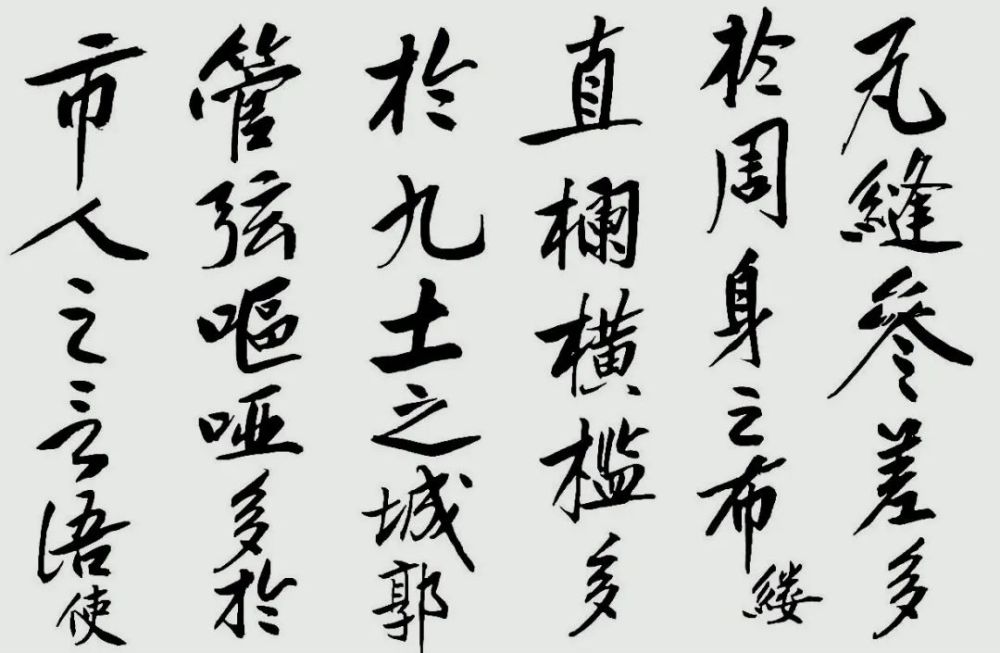 瓦縫參差多
於周身之布縷
直欄橫檻多
於九土之城郭
管弦嘔啞多於
市人之言語使